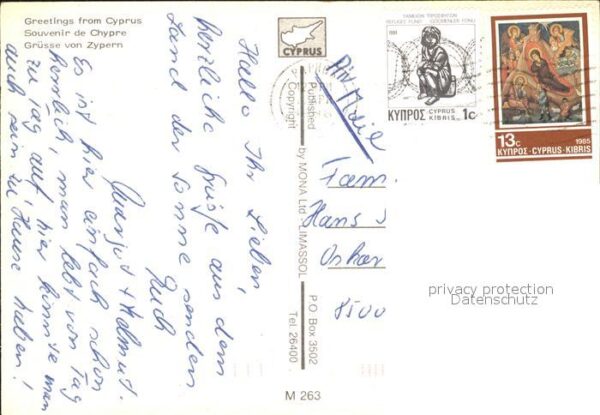 Greetings from Cyprus
Souvenir de Chypre
Grüsse von Zypern
CYPRUS
Hallo Ihr Lieben,
herzliche Grüße aus dem
Land der Sonne senden
Euch
Margot + Helmut.
Es ist hier einfach schon
herrlich, man lebt von Tag
zu Tag auf, hier könnte man
auch sein zu Hause haben!
Published by MONA Ltd LIMASSOL P.O. Box 3502
Copyright Tel. 26400
M 263
Air Mail
Fam.
Hans
Oskar
8500
1991
REFUGEE FUND GÖÇMENLER FONU
ΚΥΠΡΟΣ CYPRUS KIBRIS 1c
13c 1985
ΚΥΠΡΟΣ · CYPRUS · KIBRIS
privacy protection
Datenschutz